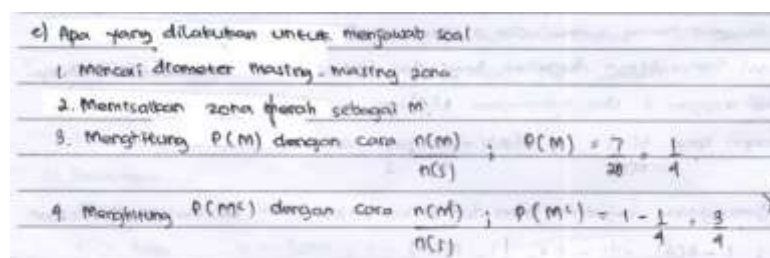 c) Apa yang dilakukan untuk menjawab soal
1. Mencari diameter masing-masing zona
2. Memisalkan zona merah sebagai M
3. Menghitung P(M) dengan cara n(M)/n(S) ; P(M) = 7/28 = 1/4
4. Menghitung P(Mᶜ) dengan cara n(M)/n(S) ; P(Mᶜ) = 1 - 1/4 = 3/4